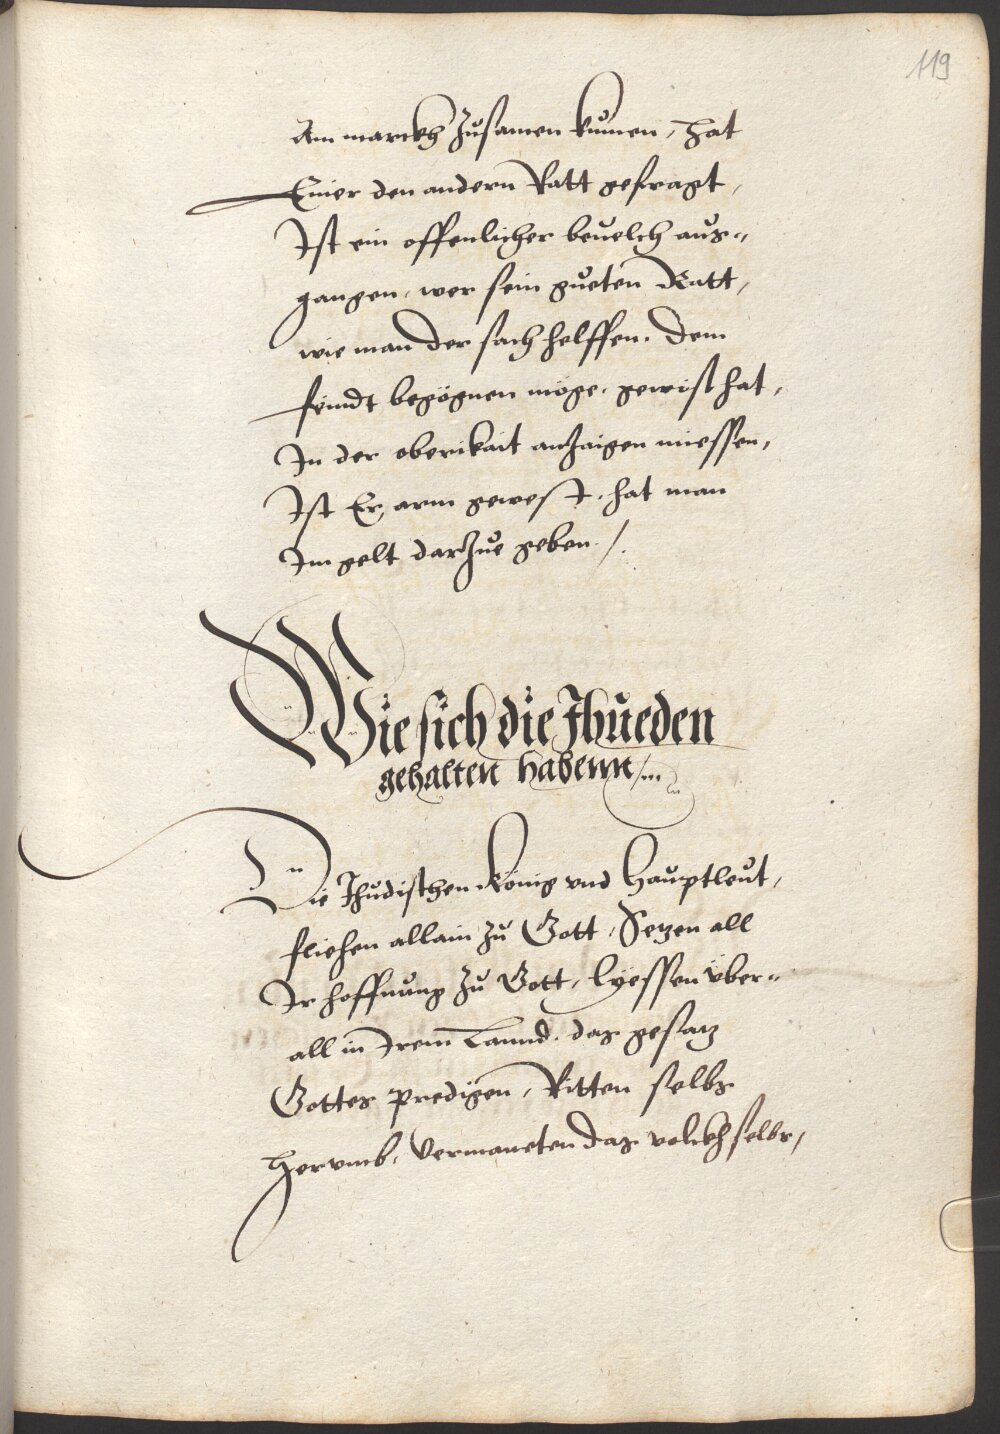 119
Am marckh zusamen kumen, hat
Einer den andern Ratt gefragt,
Ist ein offenlicher beuelch aus-
gangen, wer sein gueten Ratt,
wie man der sach helffen, dem
feindt begögnen möge, gewist hat,
In der oberikait anzaigen miessen,
Ist Er arm gewest, hat man
Im gelt darzue geben /.
Wie sich die Jhueden
gehalten habenn /...
Die Jhudischen König vnd Hauptleut,
fliehen allain zu Gott, Setzen all
Ir hoffnung zu Gott, lyessen über-
all in Irem Lannd, das gesatz
Gottes predigen, Ritten selbs
herumb, Vermaneten das volckh selbs,